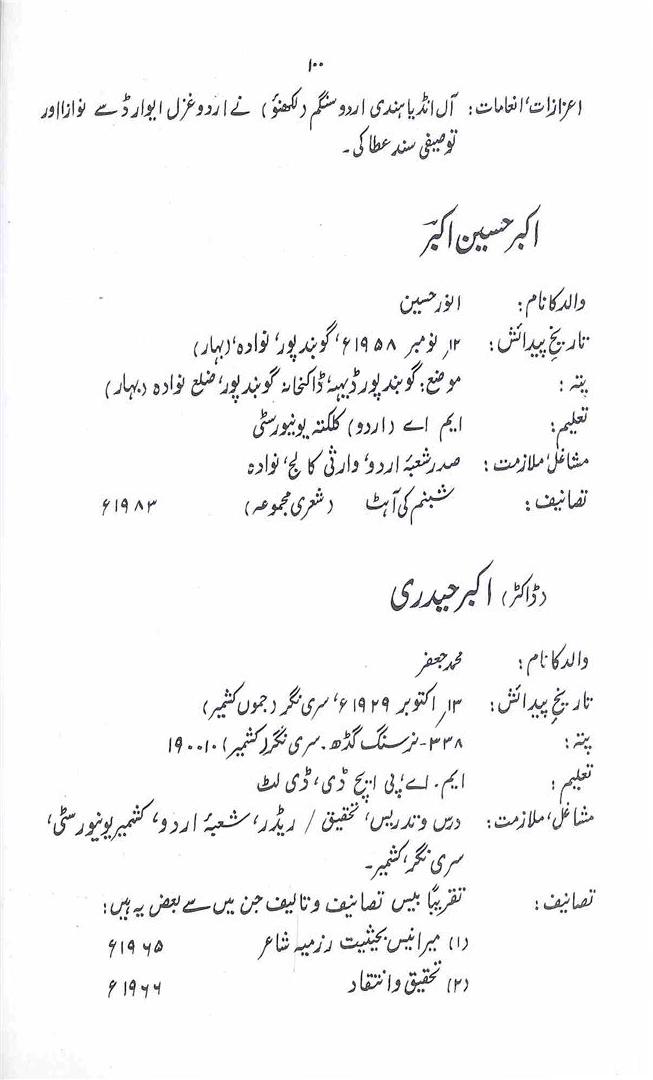 ۱۰۰
اعزازات، انعامات: آل انڈیا ہندی اردو سنگم (لکھنؤ) نے اردو غزل ایوارڈ سے نوازا اور
توصیفی سند عطا کی۔
اکبر حسین اکبرؔ
والد کا نام: انور حسین
تاریخ پیدائش: ۱۲؍ نومبر ۱۹۵۸ء، گوبند پور، نوادہ، (بہار)
پتہ: موضع: گوبند پور ڈیہہ، ڈاکخانہ گوبند پور، ضلع نوادہ (بہار)
تعلیم: ایم اے (اردو) کلکتہ یونیورسٹی
مشاغل، ملازمت: صدر شعبۂ اردو، وارثی کالج، نوادہ
تصانیف: شبنم کی آہٹ (شعری مجموعہ) ۱۹۸۳ء
(ڈاکٹر) اکبر حیدری
والد کا نام: محمد جعفر
تاریخ پیدائش: ۱۳؍ اکتوبر ۱۹۲۹ء، سری نگر (جموں کشمیر)
پتہ: ۳۳۸-نرسنگ گڈھ۔ سری نگر (کشمیر) ۱۹۰۰۱۰
تعلیم: ایم۔ اے، پی ایچ ڈی، ڈی لٹ
مشاغل، ملازمت: درس و تدریس، تحقیق / ریڈر، شعبۂ اردو، کشمیر یونیورسٹی،
سری نگر، کشمیر۔
تصانیف: تقریباً بیس تصانیف و تالیف جن میں سے بعض یہ ہیں:
(۱) میر انیس بحیثیت رزمیہ شاعر ۱۹۶۵ء
(۲) تحقیق و انتقاد ۱۹۶۶ء